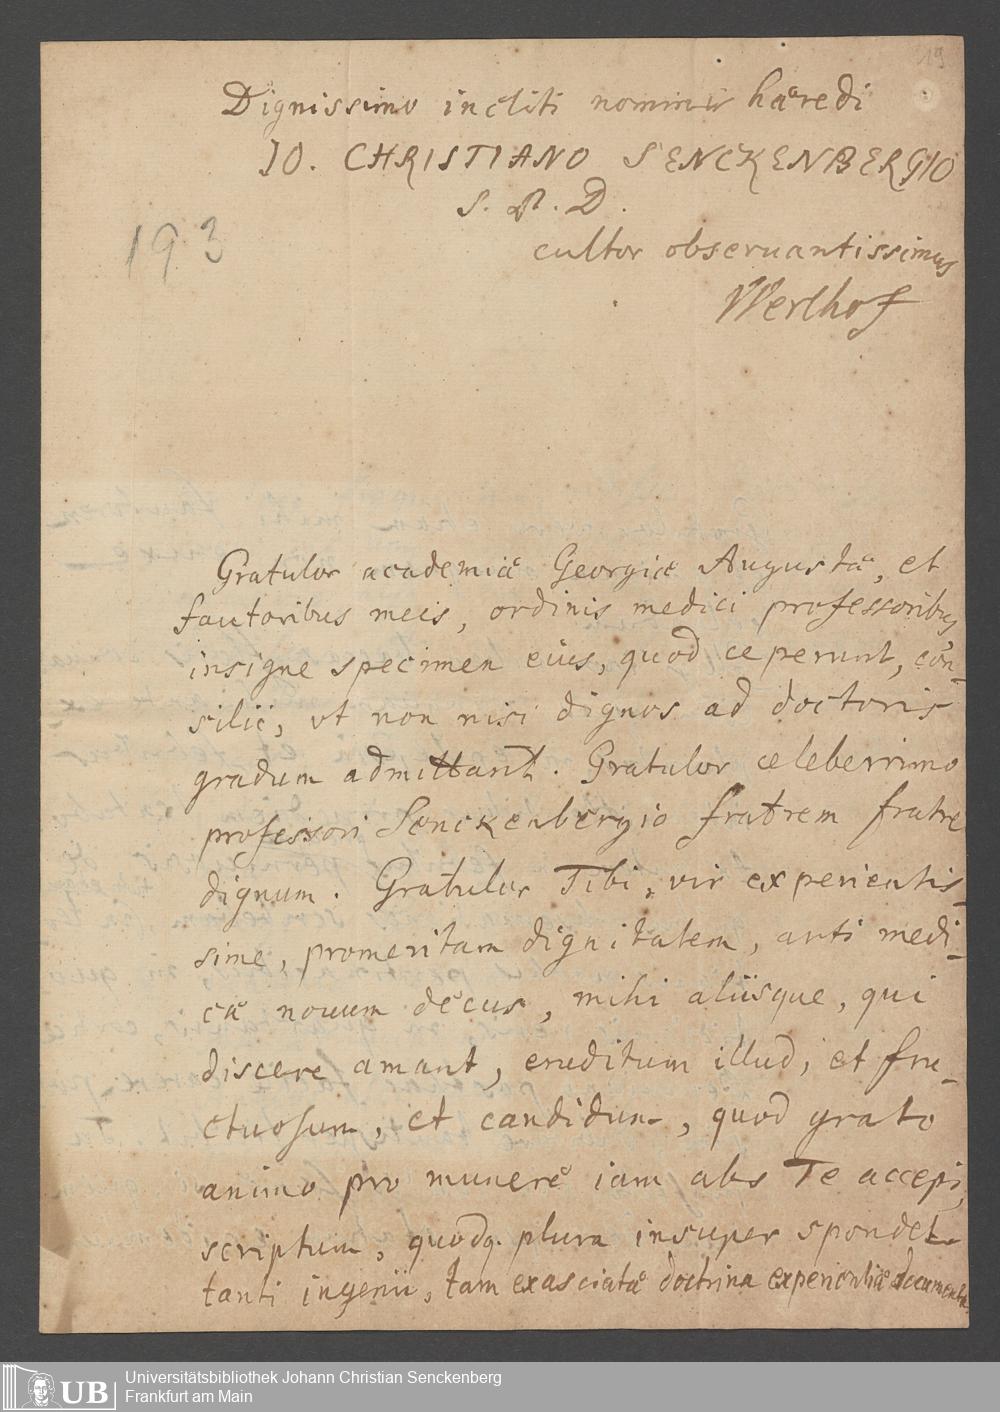 19
Dignissimo incliti nominis haeredi
IO. CHRISTIANO SENCKENBERGIO
S. P. D.
193
cultor obseruantissimus
Werlhof
Gratulor academiae Georgiae Augustae, et
fautoribus meis, ordinis medici professoribus
insigne specimen eius, quod ceperunt, con-
silii, vt non nisi dignos ad doctoris
gradum admittant. Gratulor celeberrimo
professori Senckenbergio fratrem fratre
dignum. Gratulor Tibi, vir experientis-
sime, promeritam dignitatem, arti medi-
cae nouum decus, mihi aliisque, qui
discere amant, eruditum illud, et fru-
ctuosum, et candidum, quod grato
animo pro munere iam abs Te accepi,
scriptum, quodq. plura insuper spondet
tanti ingenii, tam exasciatae doctrina experientiae documenta
UB
Universitätsbibliothek Johann Christian Senckenberg
Frankfurt am Main